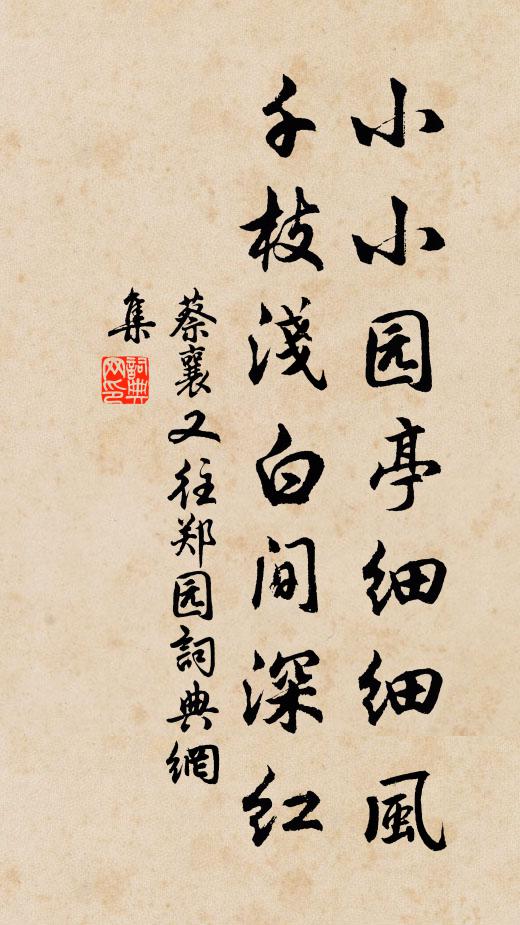 小小园亭细细風
千枝淺白间深红
蔡襄又往郑园詞典網
集
詞典
网印